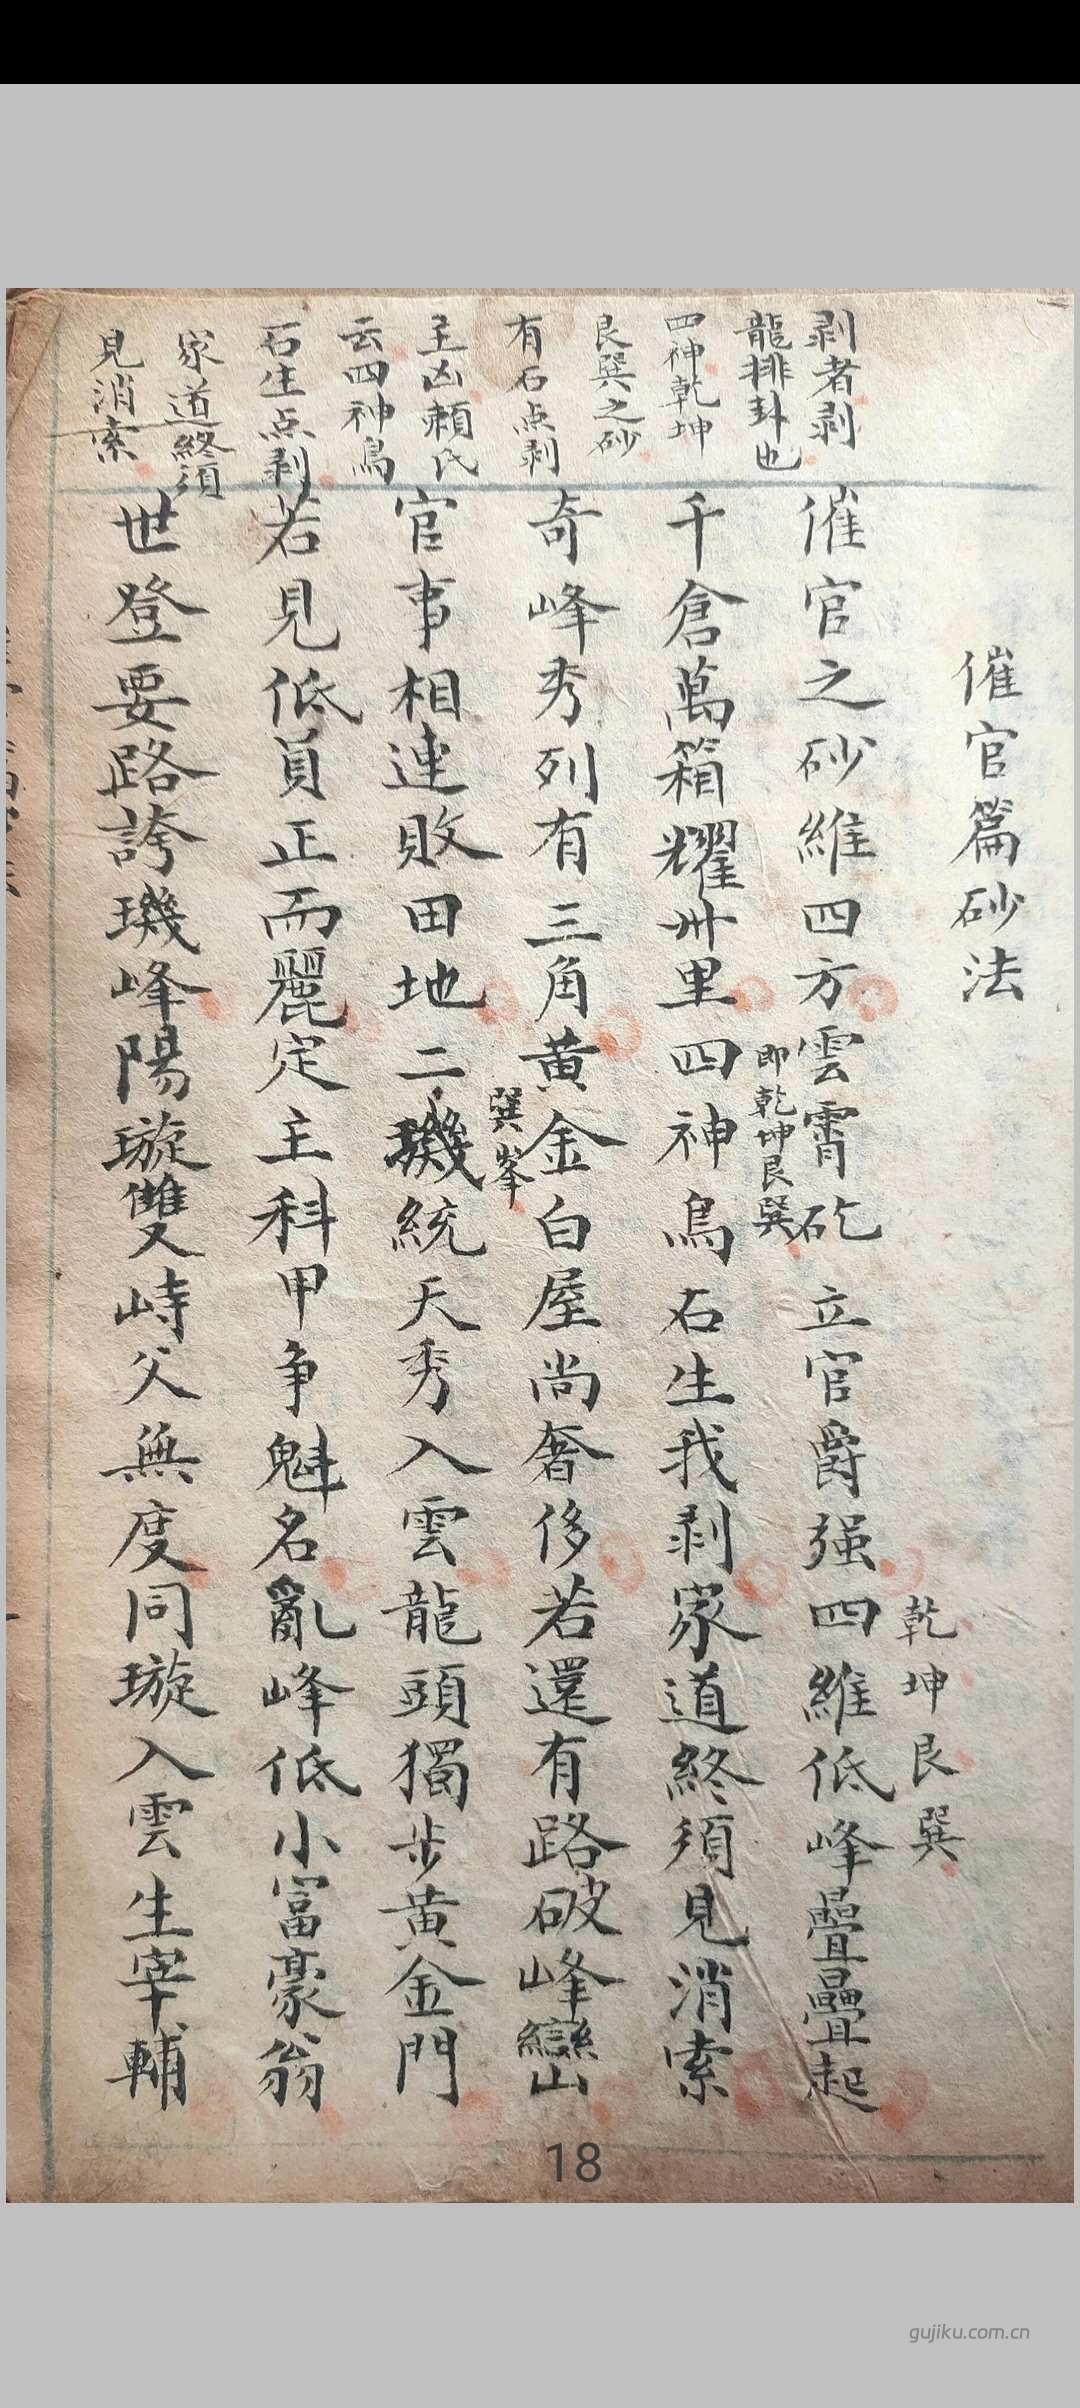 剥者剥
龍排卦也
四神乾坤
艮巽之砂
有石点剥
主凶賴氏
云四神鳥
石生点剥
家道終須
見消索
催官篇砂法
乾坤艮巽
催官之砂維四方雲霄矻立官爵强四維低峰疊疊起
即乾坤艮巽
千倉萬箱耀州里四神鳥石生我剥家道終須見消索
奇峰秀列有三角黄金白屋尚奢侈若還有路破峰巒
巽峯
官事相連敗田地二璣統天秀入雲龍頭獨步黄金門
若見低員正而麗定主科甲争魁名亂峰低小富豪翁
世登要路誇璣峰陽璇雙峙父無度同璇入雲生宰輔
18
gujiku.com.cn